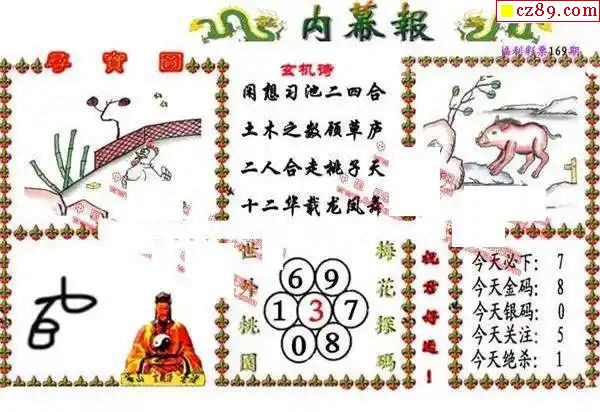 cz89.com
内幕報
福利彩票169期
尋寶圖
玄机诗
闲想习池二四合
土木之数顾草庐
二人合走桃子天
十二华载龙凤舞
世外桃園
梅花探碼
6 9
1 3 7
0 8
祝君好运!
今天必下: 7
今天金码: 8
今天银码: 0
今天关注: 5
今天绝杀: 1